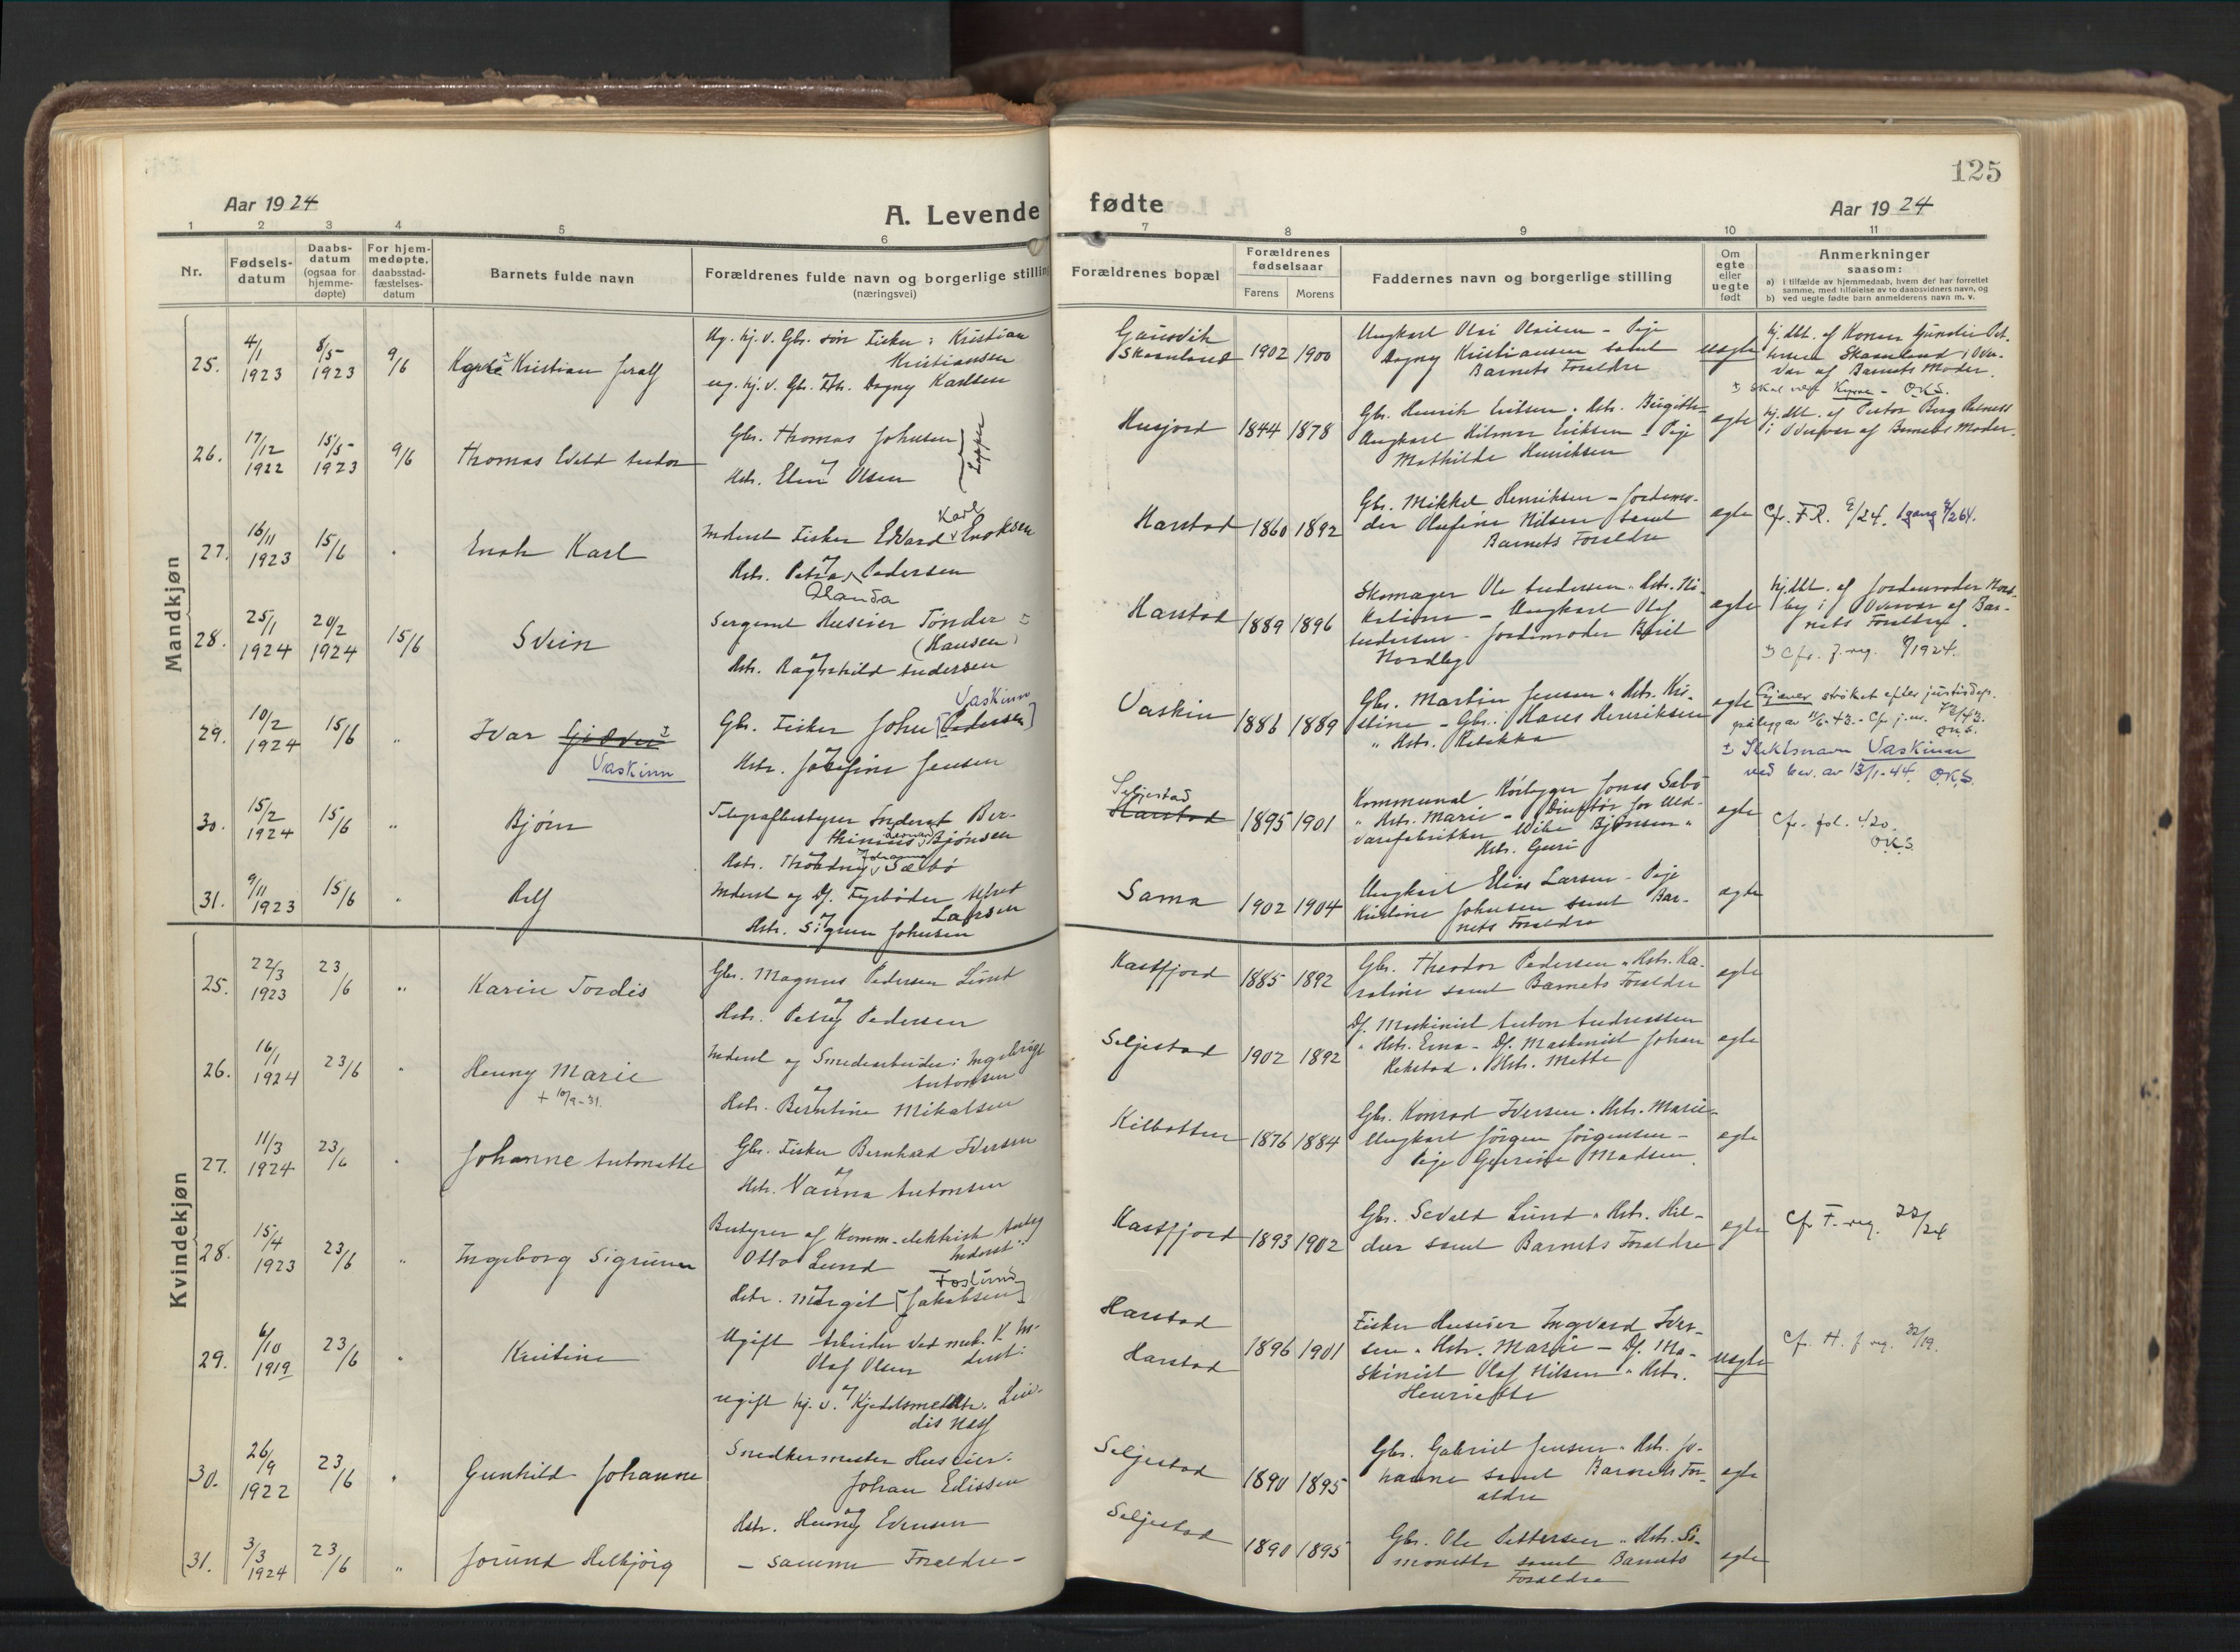 125
Aar 1924
A. Levende
fødte
Aar 1924
1 2 3 4 5 6 7 8 9 10 11
Nr.
Fødsels-
datum
Daabs-
datum
(ogsaa for
hjemme-
døpte)
For hjem-
medøpte,
daabsstad-
fæstelses-
datum
Barnets fulde navn
Forældrenes fulde navn og borgerlige stilling
(næringsvei)
Forældrenes bopæl
Forældrenes
fødselsaar
Farens
Morens
Faddernes navn og borgerlige stilling
Om
egte
eller
uegte
født
Anmerkninger
saasom:
a) i tilfælde av hjemmedaab, hvem der har forrettet
samme, med tilføielse av to daabsvidners navn, og
b) ved uegte fødte barn anmelderens navn m. v.
Mandkjøn
25. 4/1 1923 8/5- 1923 9/6 Kristian
Ug. hj. v. Gbr. søn Fisker: Kristian
Kristiansen
ug. hj. v. Gbr. Dtr. Dagny Karlsen
Gausvik
Skaanland 1902 1900
Ungkarl Olai Olaisen - Pige
Dagny Kristiansen samt
Barnets Forældre
uegte
hj.dbt. af Konen
Skaanland i Over-
vær af Barnets Moder.
O.K.S.
26. 17/12 1922 15/5- 1923 9/6 Thomas
Gbr. Thomas Johnsen
Hstr. Olsen
Lapper
Husjord 1844 1878
Gbr. Henrik Eriksen, Hstr. Birgitte
Ungkarl Hilmar Eriksen - Pige
Mathilde Henriksen
egte
hj.dbt. af Pastor Berg
i Overvær af Barnets Moder.
27. 16/11 1923 15/6 " Enok Karl
Inderst Fisker Edvard Karl Enoksen
og
Hstr. Petra Pedersen
Harstad 1860 1892
Gbr. Mikkel Henriksen - Jordmo-
der Olufine Nilsen samt
Barnets Forældre
egte
Cfr. F.R. 9/24.
28. 25/1 1924 20/2 1924 15/6 Svein
Sergeant Huseier Tønder
(Hansen)
og
Hstr. Ragnhild Andersen
Harstad 1889 1896
Skomager Ole Andersen, Hstr. Ni-
koline - Ungkarl Olaf
Andersen - Jordemoder Berit
Nordby
egte
hj.dbt. af Jordemoder Nord-
by i Overvær af Bar-
nets Forældre.
Cfr. f. reg. 8/1924.
29. 10/2 1924 15/6 " Ivar Giæver
Vaskinn
Vaskinn
Gbr. Fisker Johan [Pedersen]
og
Hstr. Josefine Jensen
Vaskin 1886 1889
Gbr. Martin Jensen, Hstr. Kri-
stine - Gbr. Hans Henriksen
" Hstr. Rebekka
egte
Gjæver strøket efter justisdep.
pålegg av 11/6-43. - Cfr. j.nr. 72/43.
Slektsnavn Vaskinn
ved bev. av 13/1-44. O.K.S.
30. 15/2 1924 15/6 " Bjørn
Telegrafbestyrer Inderst Ber-
thinius Bjørnsen
og
Hstr. Sæbö
Seljestad
Harstad 1895 1901
Kommunal Kördygger Jonas Sæbö
" Hstr. Marie - Direktör for Uld-
varefabrikken Wibe Björnsen "
Hstr. Guri
egte
Cfr. fol. 420.
O.K.S.
31. 9/11 1923 15/6 " Rolf
Inderst og Df. Fyrbøder Alfred
Larsen
og
Hstr. Sigrun Johnsen
Sama 1902 1904
Ungkarl Elias Larsen - Pige
Kristine Johnsen samt Bar-
nets Forældre
egte
Kvindekjøn
25. 22/3 1923 23/6 " Karin Tordis
Gbr. Magnus Pedersen Lund
og
Hstr. Petry Pedersen
Kastfjord 1885 1892
Gbr. Theodor Pedersen, Hstr. Ka-
roline samt Barnets Forældre
egte
26. 16/1 1924 23/6 " Henny Marie
+ 10/9-31.
Inderst og Smedearbeider: Ingebrigt
Antonsen
og
Hstr. Berntine Mikalsen
Seljestad 1902 1892
Df. Maskinist Anton Andreassen
" Hstr. Erna - Df. Maskinist Johan
Rekstad, Hstr. Mette
egte
27. 11/3 1924 23/6 " Johanne Antonette
Gbr. Fisker Bernhard Iversen
og
Hstr. Vanna Antonsen
Kilbotten 1876 1884
Gbr. Konrad Iversen, Hstr. Marie -
Ungkarl Jørgen Jørgensen -
Pige Guerine Madsen.
egte
28. 15/4 1923 23/6 " Ingeborg Sigrunn
Bestyrer af Komm. elektrisk Anlæg
Otto Lund Inderst
Foslund
Hstr. Margit [Jakobsen]
Kastfjord 1893 1902
Gbr. Sevald Lund, Hstr. Hil-
dur samt Barnets Forældre
egte
Cfr. F. reg. 22/24
29. 6/10 1919 23/6 " Kristine
Ugift Arbeider ved mek. V. In-
Olaf Olsen derst:
og
ugift hj. v. Kjedelsmed Dtr. Liv-
dis Næss
Harstad
Harstad 1896 1901
Fisker Huseier Ingvard Iver-
sen, Hstr. Marie - Df. Ma-
skinist Olaf Nilsen " Hstr.
Henriette
uegte
Cfr. H. f. reg. 32/19.
30. 26/9 1922 23/6 " Gunhild Johanne
Snedkermester Huseier:
Johan Edissen
og
Hstr. Henny Evensen
Seljestad 1890 1895
Gbr. Gabriel Jensen, Hstr. Jo-
hanne samt Barnets For-
ældre
egte
31. 3/3 1924 23/6 " Jorund Helbjörg
- Samme Forældre -
Seljestad 1890 1895
Gbr. Ole Pettersen, Hstr. Si-
monette samt Barnets
Forældre
egte